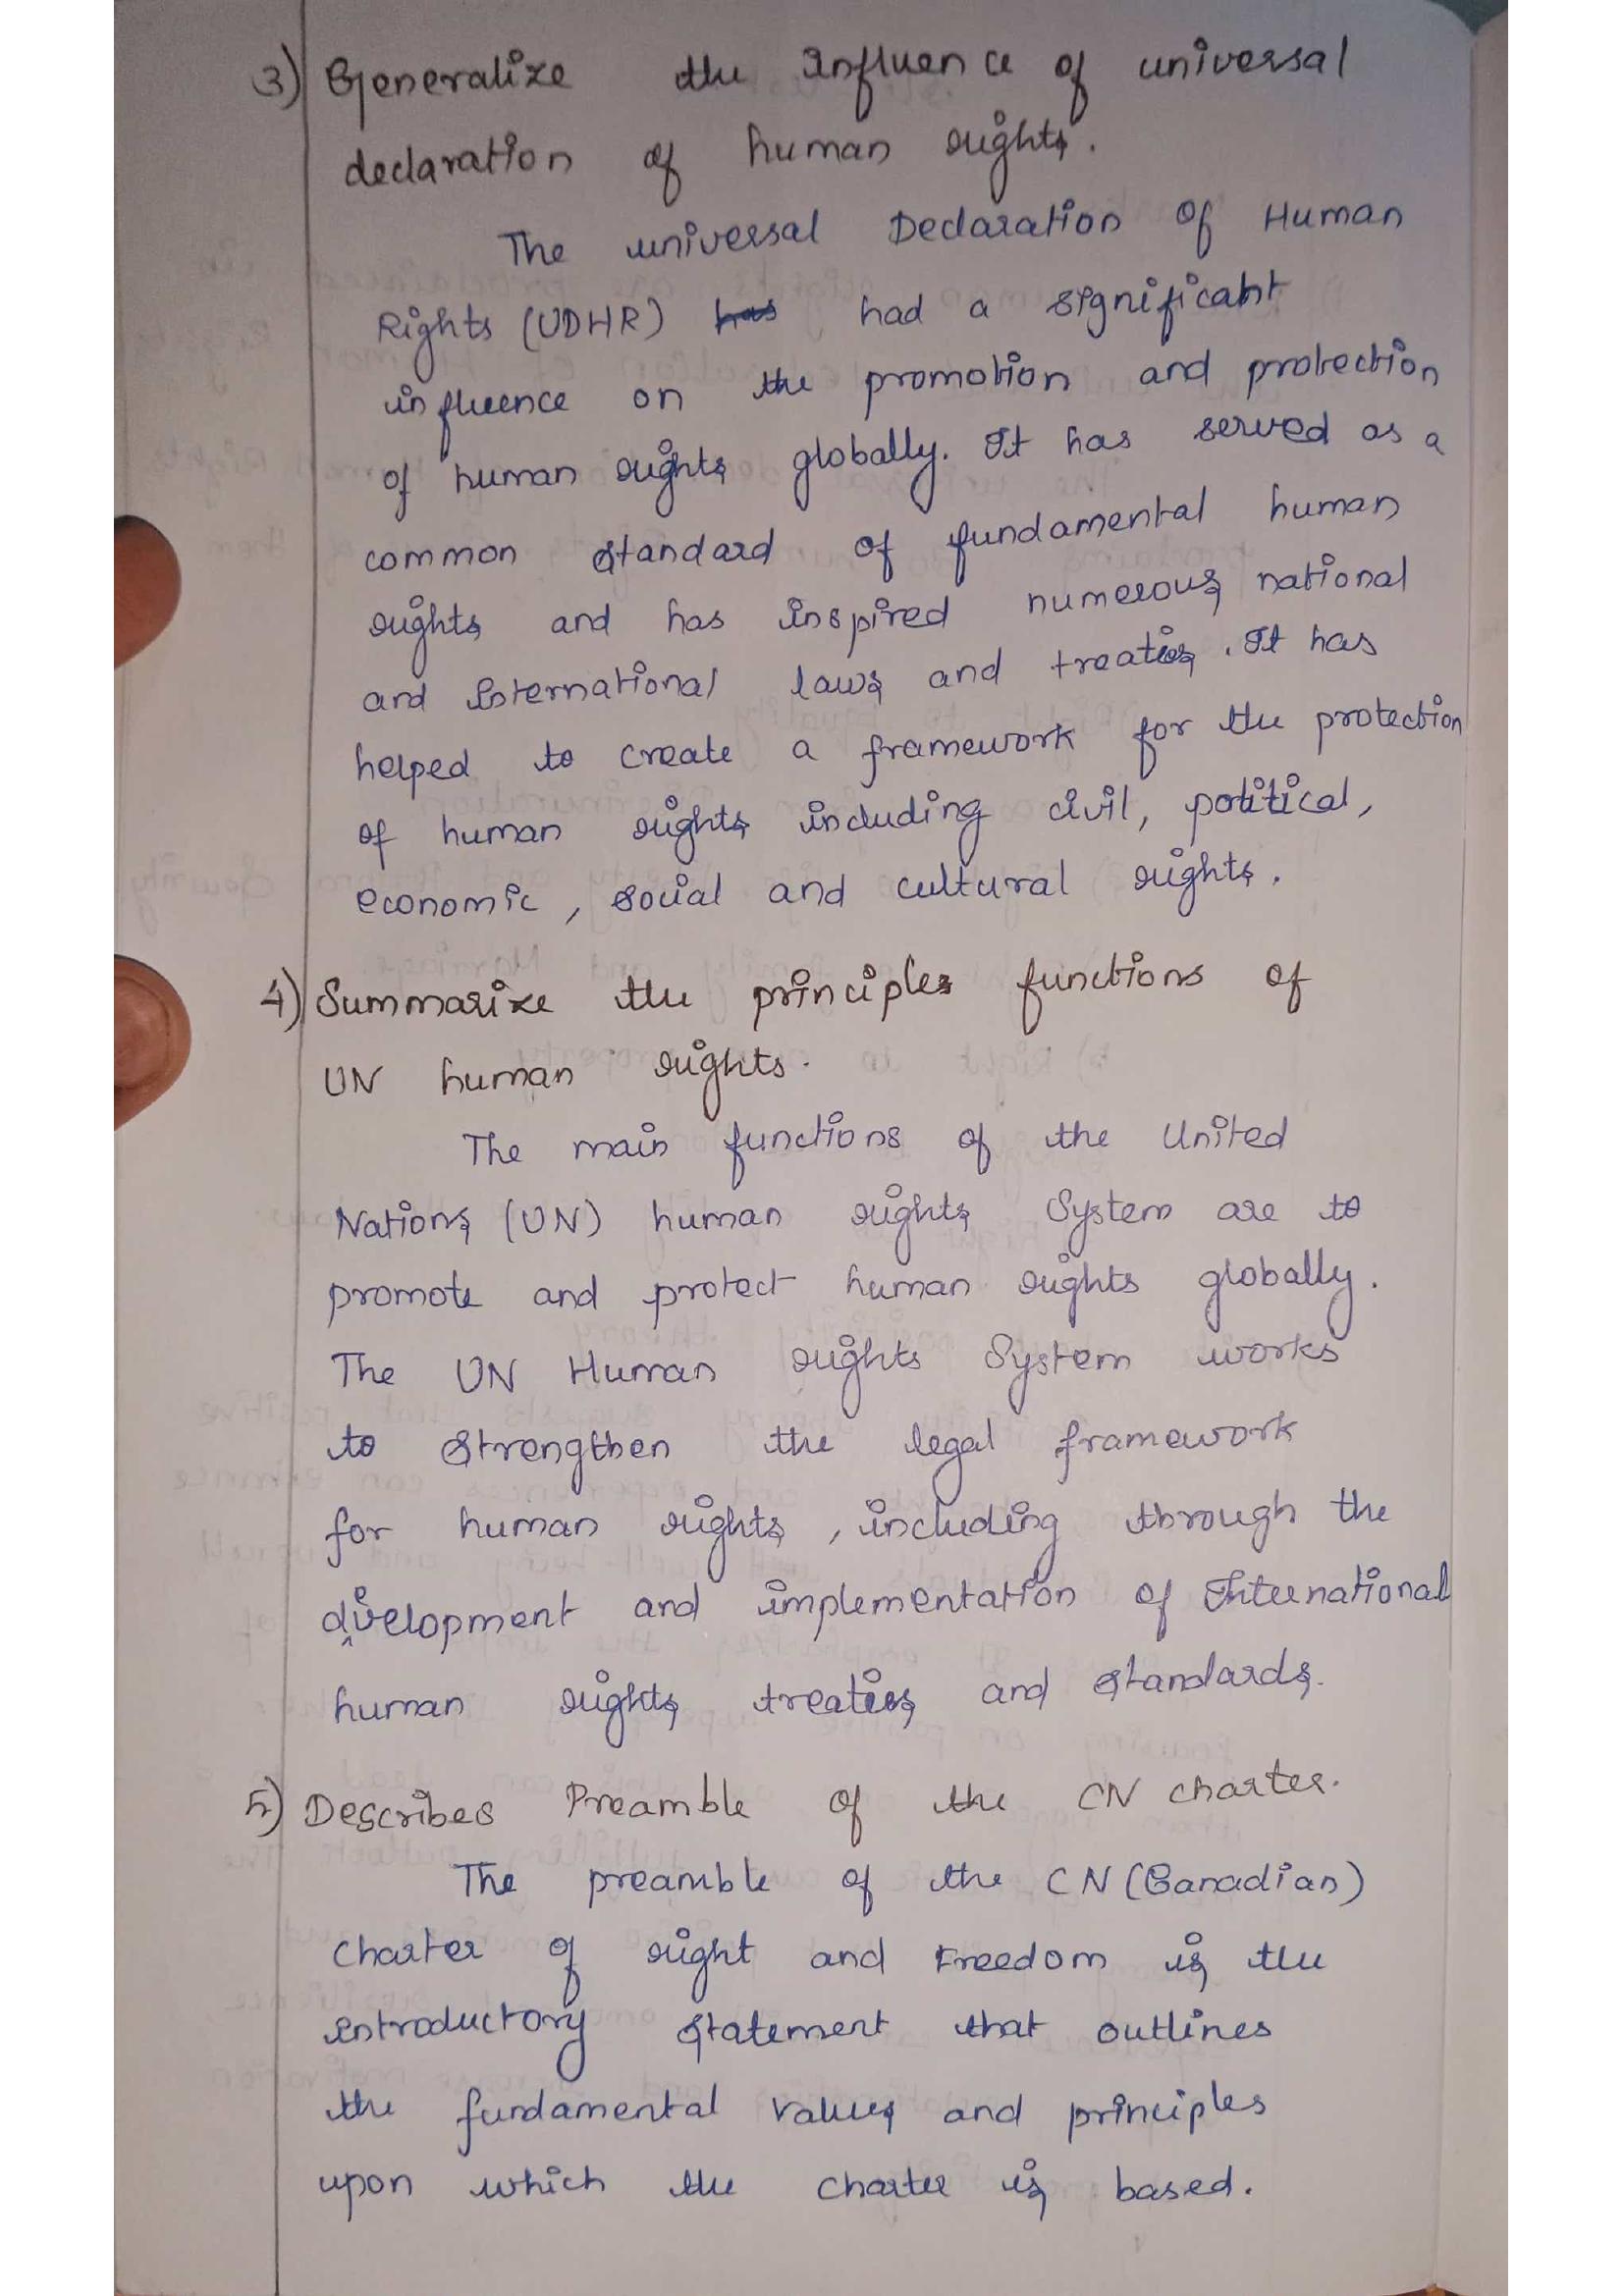 3) Generalize the Influence of universal
declaration of human rights.
The universal Declaration of Human
Rights (UDHR) has had a significant
influence on the promotion and protection
of human rights globally. It has served as a
common standard of fundamental human
rights and has inspired numerous national
and International laws and treaties. It has
helped to create a framework for the protection
of human rights including civil, political,
economic, social and cultural rights.
4) Summarize the principles functions of
UN human rights.
The main functions of the United
Nations (UN) human rights System are to
promote and protect human rights globally.
The UN Human rights System works
to strengthen the legal framework
for human rights, including through the
divelopment and implementation of International
human rights treaties and standards.
5) Describes Preamble of the CN charter.
The preamble of the CN (Canadian)
Charter of right and Freedom is the
introductory statement that outlines
the fundamental values and principles
upon which the charter is based.